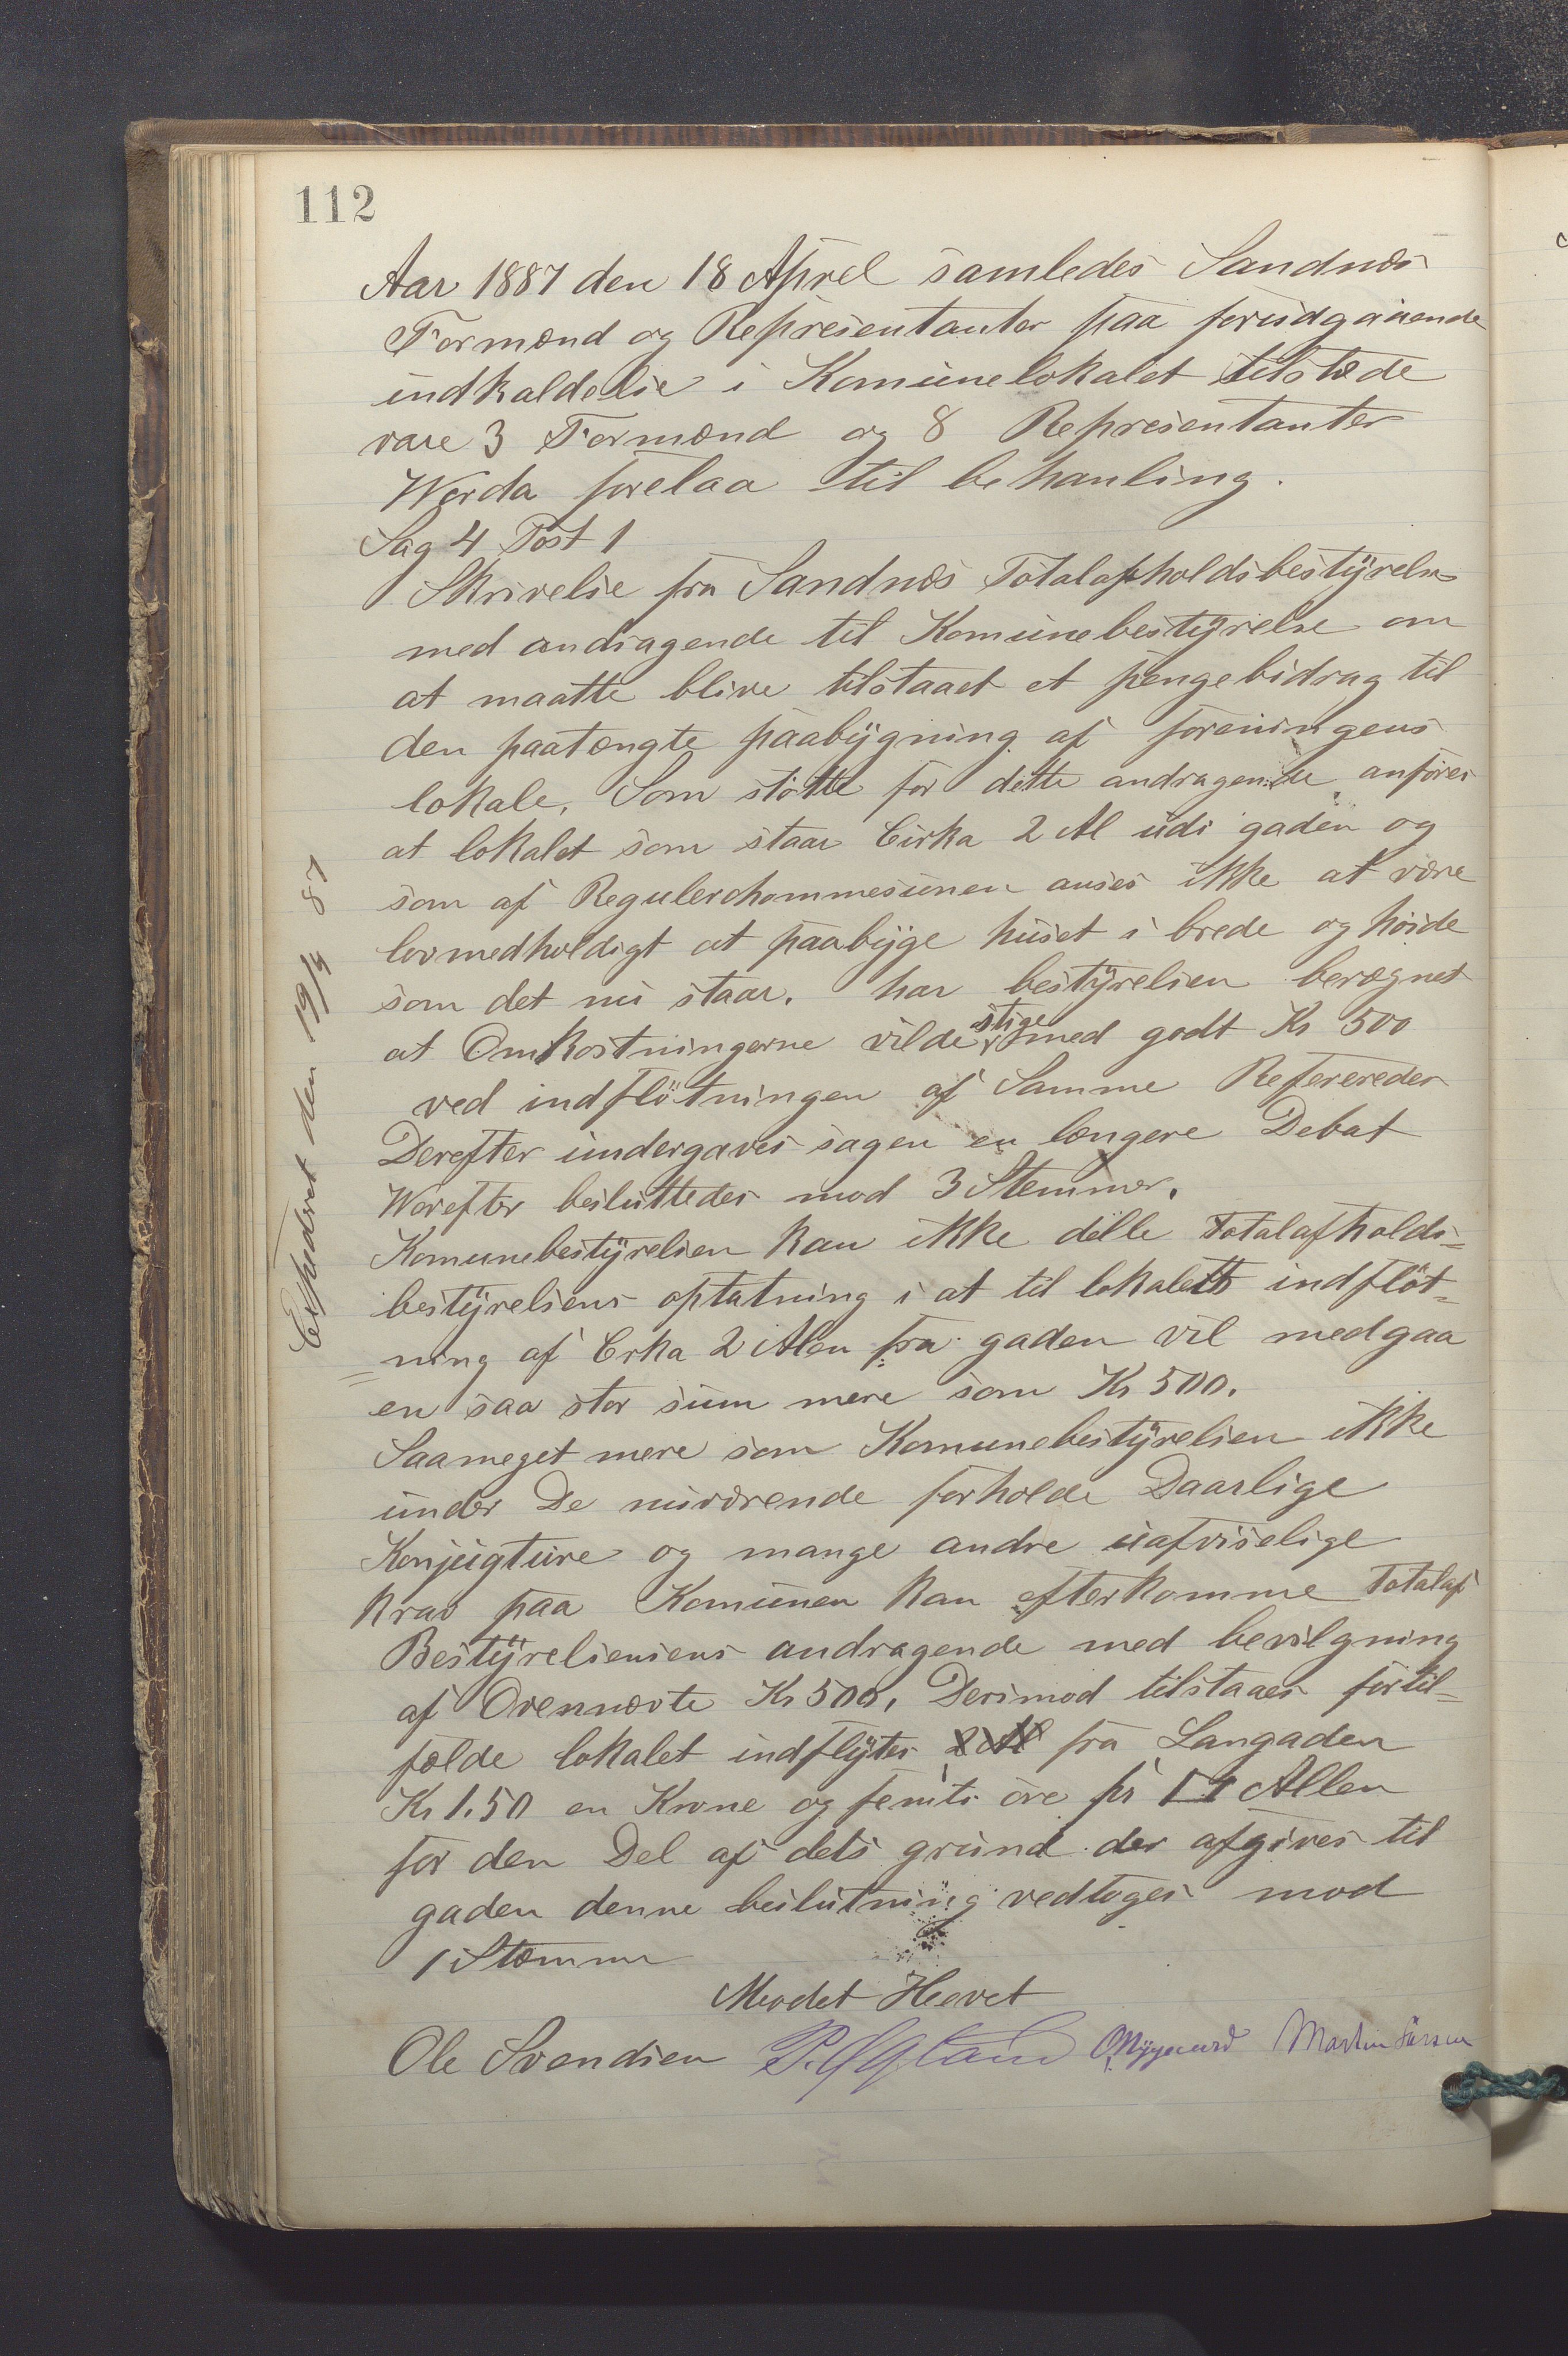 112
Aar 1887 den 18 Aprel samledes Sandnæs
Formænd og Representanter paa forudgaaende
indkaldelse i Komunelokalet tilstede
vare 3 Formænd og 8 Representanter
Worda forelaa til behanling.
Sag 4 Post 1
Skrivelse fra Sandnæs Totalafholdsbestyrelse
med andragende til Komunebestyrelse om
at maatte blive tilstaaet et pengebidrag til
den paatængte paabygning af foreningens
lokale. Som støtte for dette andragende anføres
at lokalet som staar Cirka 2 Al udi gaden og
som af Regulerchommesunen anses ikke at være
lovmedholdigt at paabyge huset i brede og høide
som det nu staar. har bestyrelsen beregnet
at Omkostningerne vilde stige med godt Kr 500
ved indfløtningen af Samme Refereredes
Derefter undergaves sagen en længere Debat
Worefter besluttedes mod 3 Stemmer.
Komunebestyrelsen kan ikke delle Totalafholds=
bestyrelsens optatning i at til lokalets indfløt=
ning af Cirka 2 Alen fra gaden vil medgaa
en saa stor sum mere som Kr 500.
Saameget mere som Komunebestyrelsen ikke
under De nuværende forholde Daarlige
Konjugture og mange andre uafviselige
krav paa Komunen kan efterkomme Totalaf
Bestyrelsensens andragende med bevilgning
af Ovennævte Kr 500. Derimod tilstaaes fortil=
fælde lokalet indflytes 2 Al fra Langaden
Kr 1.50 en Krone og femti øre pr □ Allen
for den Del af dets grund der afgives til
gaden denne beslutning vedtoges mod
1 Stemme
Mødet Hevet
Ole Svendsen P. Øgland O Nygaard Martin Larsen
Expederet den 19/4 87